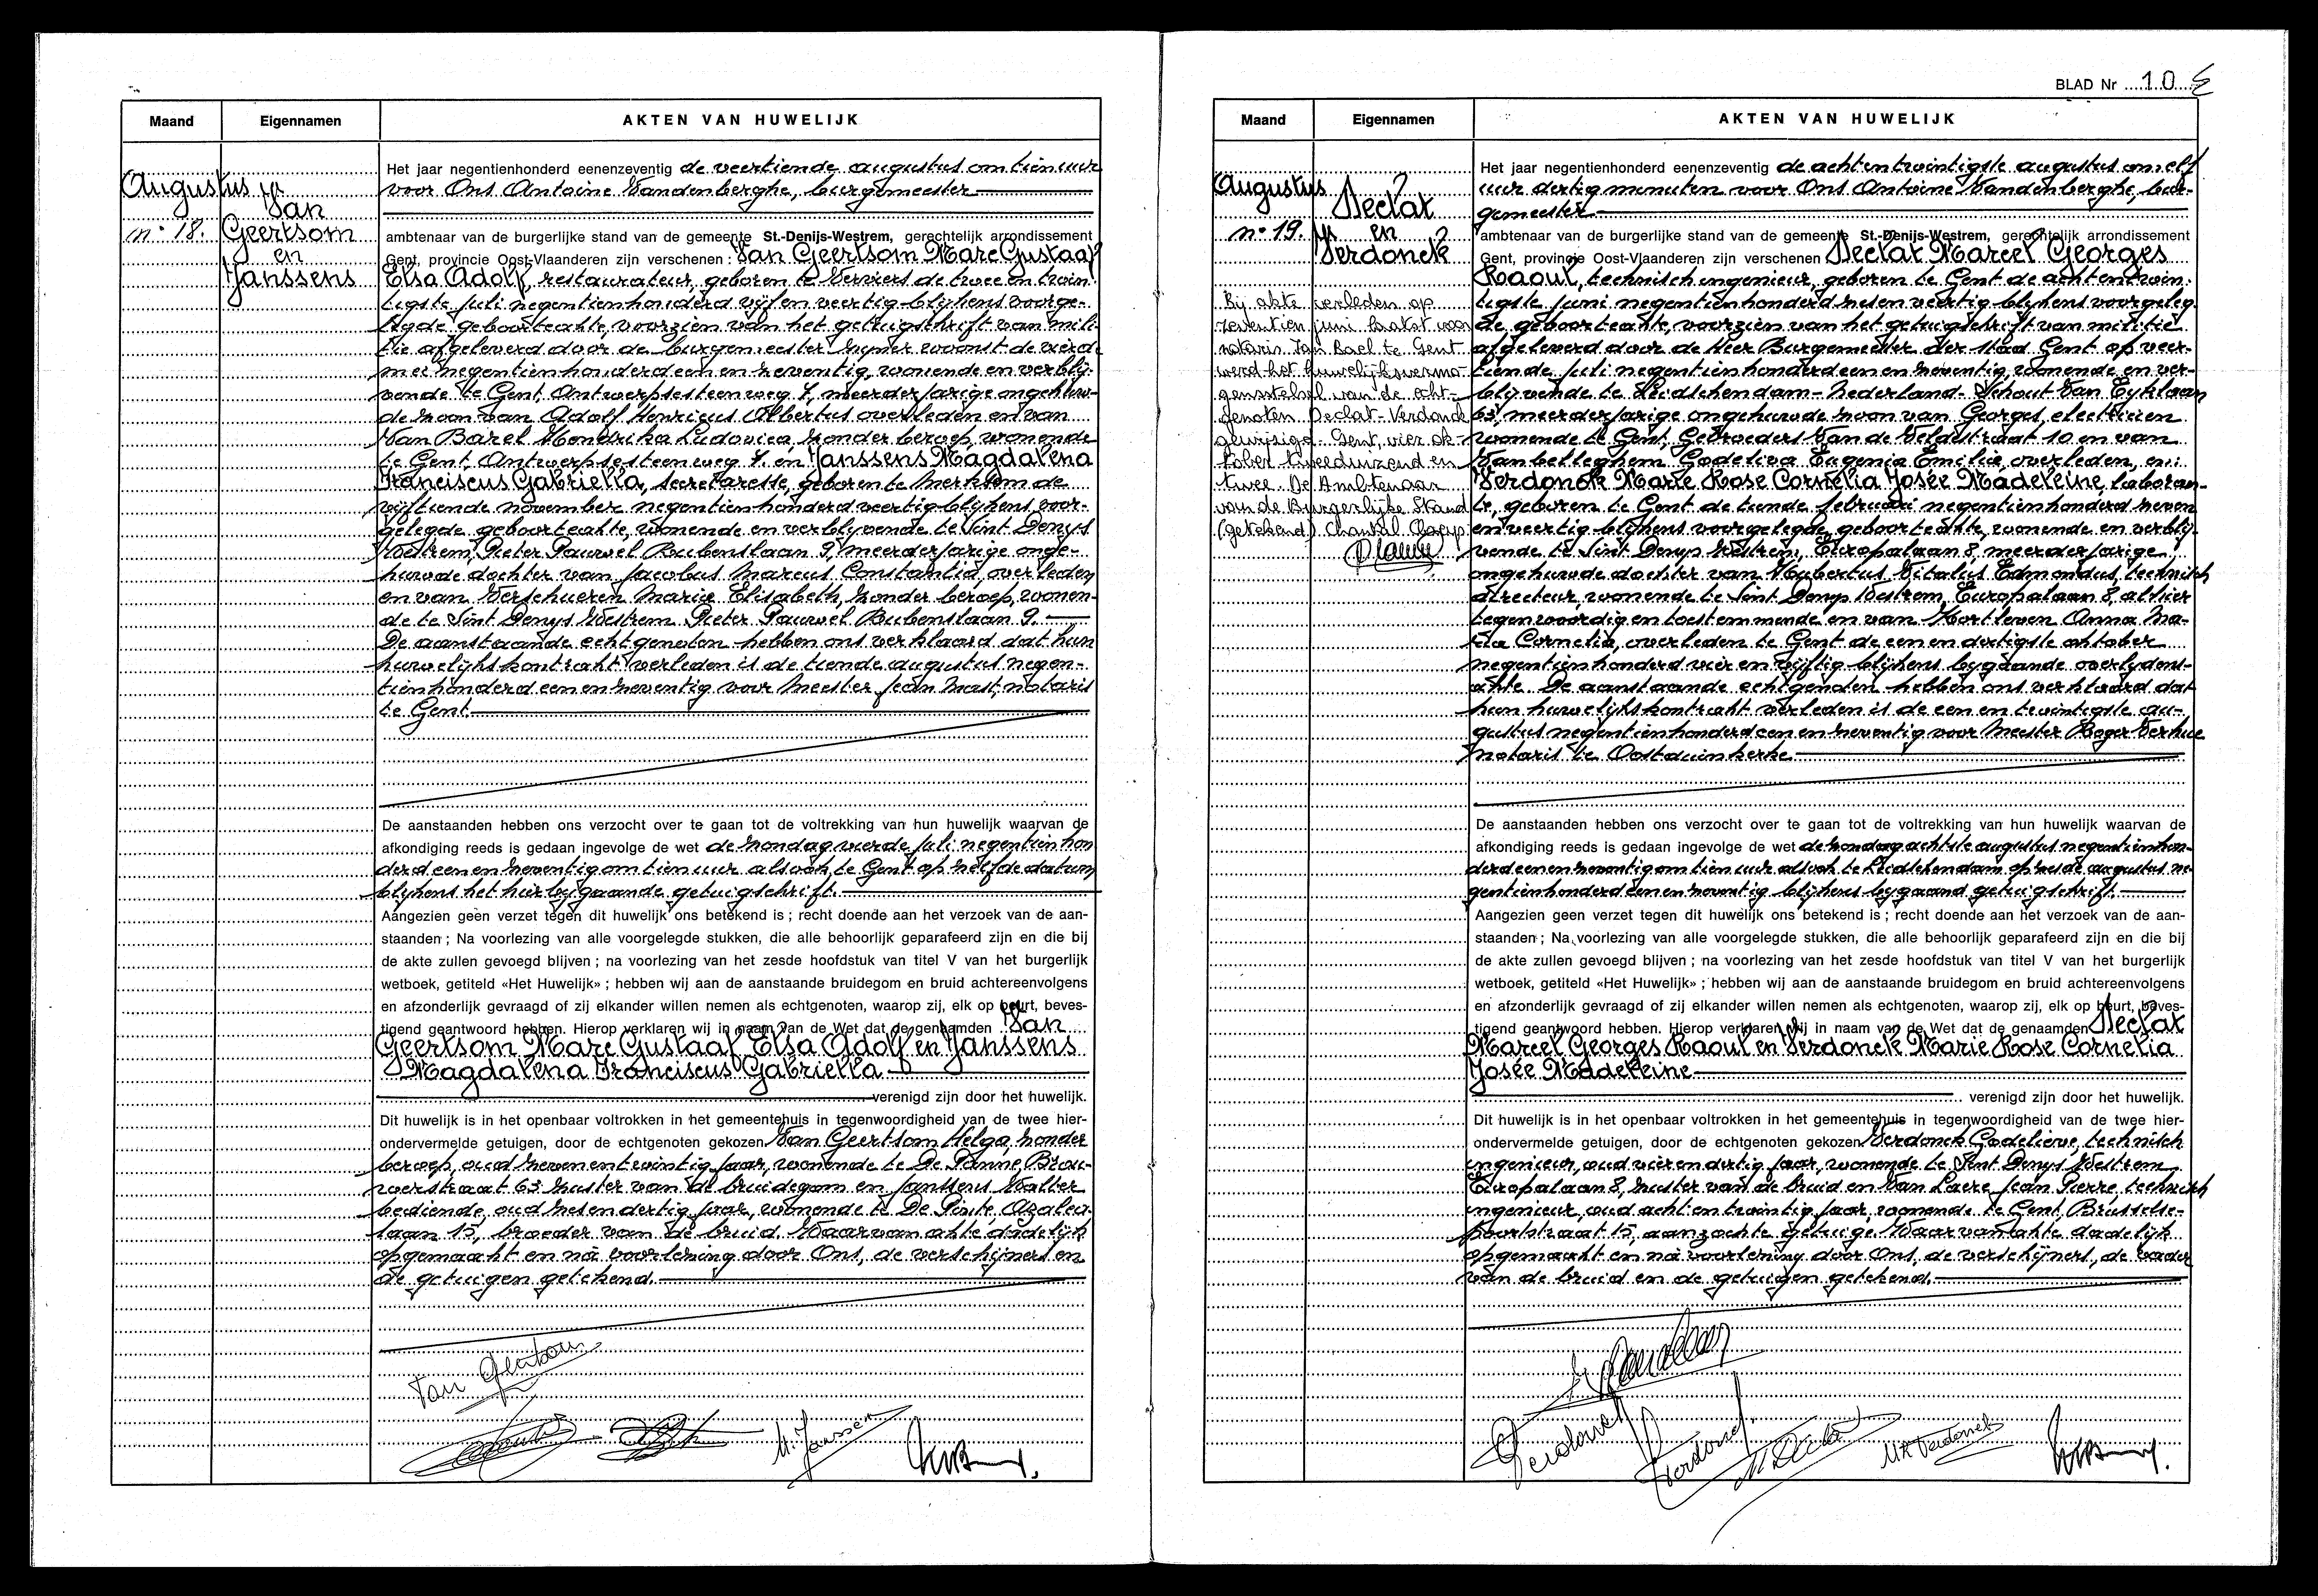 Maand
Eigennamen
AKTEN VAN HUWELIJK
Augustus
n° 18.
Van
Geertsom
en
Janssens
Het jaar negentienhonderd eenenzeventig de veertiende augustus om tien uur
voor Ons Antoine Vandenberghe, burgemeester
ambtenaar van de burgerlijke stand van de gemeente St.-Denijs-Westrem, gerechtelijk arrondissement
Gent, provincie Oost-Vlaanderen zijn verschenen : Van Geertsom Marc Gustaaf
Elsa Adolf, restaurateur, geboren te Verviers de twee en twin-
tigste juli negentienhonderd vijf en veertig blijkens voorge-
legde geboorteakte, voorzien van het getuigschrift van mili-
tie afgeleverd door de burgemeester zijner woonst de vierde
mei negentienhonderd een en zeventig, wonende en verblij-
vende te Gent, Antwerpsesteenweg 4, meerderjarige ongehuw-
de zoon van Adolf Henricus Albertus overleden en van
Van Barel Hendrika Ludovica, zonder beroep, wonende
te Gent, Antwerpsesteenweg 4. en Janssens Magdalena
Franciscus Gabriella, secretaresse, geboren te Merksem de
vijftiende november negentienhonderd veertig blijkens voor-
gelegde geboorteakte, wonende en verblijvende te Sint Denys
Westrem, Pieter Pauwel Rubenslaan 9, meerderjarige onge-
huwde dochter van Jacobus Marcus Constantia overleden
en van Verschueren Maria Elisabeth, zonder beroep, wonen-
de te Sint Denys Westrem Pieter Pauwel Rubenslaan 9.
De aanstaande echtgenoten hebben ons verklaard dat hun
huwelijkskontrakt verleden is de tiende augustus negen-
tienhonderd een en zeventig voor Meester Jean Mast, notaris
te Gent
De aanstaanden hebben ons verzocht over te gaan tot de voltrekking van hun huwelijk waarvan de
afkondiging reeds is gedaan ingevolge de wet de zondag vierde juli negentienhon
derd een en zeventig om tien uur alsook te Gent op zelfde datum
blijkens het hierbijgaande getuigschrift.
Aangezien geen verzet tegen dit huwelijk ons betekend is ; recht doende aan het verzoek van de aan-
staanden ; Na voorlezing van alle voorgelegde stukken, die alle behoorlijk geparafeerd zijn en die bij
de akte zullen gevoegd blijven ; na voorlezing van het zesde hoofdstuk van titel V van het burgerlijk
wetboek, getiteld «Het Huwelijk» ; hebben wij aan de aanstaande bruidegom en bruid achtereenvolgens
en afzonderlijk gevraagd of zij elkander willen nemen als echtgenoten, waarop zij, elk op beurt, beves-
tigend geantwoord hebben. Hierop verklaren wij in naam van de Wet dat de genaamden Van
Geertsom Marc Gustaaf Elsa Adolf en Janssens
Magdalena Franciscus Gabriella
verenigd zijn door het huwelijk.
Dit huwelijk is in het openbaar voltrokken in het gemeentehuis in tegenwoordigheid van de twee hier-
ondervermelde getuigen, door de echtgenoten gekozen Van Geertsom Helga, zonder
beroep, oud zeven en twintig jaar, wonende te De Panne, Brou-
werstraat 63 zuster van de bruidegom en Janssens Walter
bediende, oud zes en dertig jaar, wonende te De Pinte, Azalea-
laan 15, broeder van de bruid. Waarvan akte dadelijk
opgemaakt en na voorlezing door Ons, de verschijners en
de getuigen getekend.
Van Geertsom
M. Janssen
BLAD Nr 10
Maand
Eigennamen
AKTEN VAN HUWELIJK
Augustus
n° 19.
Declat
en
Verdonck
Bij akte verleden op
zeventien juni laatst voor
notaris Van Bael te Gent
werd het huwelijksvermo-
gensstelsel van de echt-
genoten Declat-Verdonck
gewijzigd. Gent, vier ok-
tober tweeduizend en
twee. De Ambtenaar
van de Burgerlijke Stand
(getekend) Chantal
Het jaar negentienhonderd eenenzeventig de achtentwintigste augustus om elf
uur dertig minuten voor Ons Antoine Vandenberghe, bur-
gemeester
ambtenaar van de burgerlijke stand van de gemeente St.-Denijs-Westrem, gerechtelijk arrondissement
Gent, provincie Oost-Vlaanderen zijn verschenen Declat Marcel Georges
Raoul, technisch ingenieur, geboren te Gent de acht en twin-
tigste juni negentienhonderd zes en veertig blijkens voorgeleg
de geboorteakte, voorzien van het getuigschrift van militie
afgeleverd door de Heer Burgemeester der stad Gent op veer-
tiende juli negentienhonderd een en zeventig, wonende en ver-
blijvende te Leidschendam-Nederland. Schout Van Eyklaan
63, meerderjarige ongehuwde zoon van Georges, electricien
wonende te Gent, Gebroeders Van de Veldestraat 10 en van
Vanbelleghem Godeliva Eugenia Emilia, overleden, en:
Verdonck Marie Rose Cornelia Josée Madeleine, laboran-
te, geboren te Gent de tiende februari negentienhonderd zeven
en veertig blijkens voorgelegde geboorteakte, wonende en verblij-
vende te Sint Denys Westrem, Europalaan 8, meerderjarige
ongehuwde dochter van Hubertus Vitalus Edmondus, technisch
directeur, wonende te Sint Denys Westrem, Europalaan 8, alhier
tegenwoordig en toestemmende en van Hortleven Anna Ma-
ria Cornelia, overleden te Gent de een en dertigste oktober
negentienhonderd vier en vijftig blijkens bygaande overlydens-
akte. De aanstaande echtgenoten hebben ons verklaard dat
hun huwelijkskontrakt verleden is de een en twintigste au-
gustus negentienhonderd een en zeventig voor Meester Roger Verhue
notaris te Oostduinkerke
De aanstaanden hebben ons verzocht over te gaan tot de voltrekking van hun huwelijk waarvan de
afkondiging reeds is gedaan ingevolge de wet de zondag achtste augustus negentienhon-
derd een en zeventig om tien uur alsook te Leidschendam op zesde augustus ne-
gentienhonderd een en zeventig blijkens bygaand getuigschrift.
Aangezien geen verzet tegen dit huwelijk ons betekend is ; recht doende aan het verzoek van de aan-
staanden ; Na voorlezing van alle voorgelegde stukken, die alle behoorlijk geparafeerd zijn en die bij
de akte zullen gevoegd blijven ; na voorlezing van het zesde hoofdstuk van titel V van het burgerlijk
wetboek, getiteld «Het Huwelijk» ; hebben wij aan de aanstaande bruidegom en bruid achtereenvolgens
en afzonderlijk gevraagd of zij elkander willen nemen als echtgenoten, waarop zij, elk op beurt, beves-
tigend geantwoord hebben. Hierop verklaren wij in naam van de Wet dat de genaamden Declat
Marcel Georges Raoul en Verdonck Marie Rose Cornelia
Josée Madeleine
verenigd zijn door het huwelijk.
Dit huwelijk is in het openbaar voltrokken in het gemeentehuis in tegenwoordigheid van de twee hier-
ondervermelde getuigen, door de echtgenoten gekozen Verdonck Godelieve, technisch
ingenieur, oud vier en dertig jaar, wonende te Sint Denys Westrem
Europalaan 8, zuster van de bruid en Van Laere Jean Pierre, technisch
ingenieur, oud acht en twintig jaar, wonende te Gent, Brusselse-
poortstraat 15, aanzochte getuige. Waarvan akte dadelijk
opgemaakt en na voorlezing door Ons, de verschijners, de vader
van de bruid en de getuigen getekend.
Verdonck
Verdonck
MR Verdonck